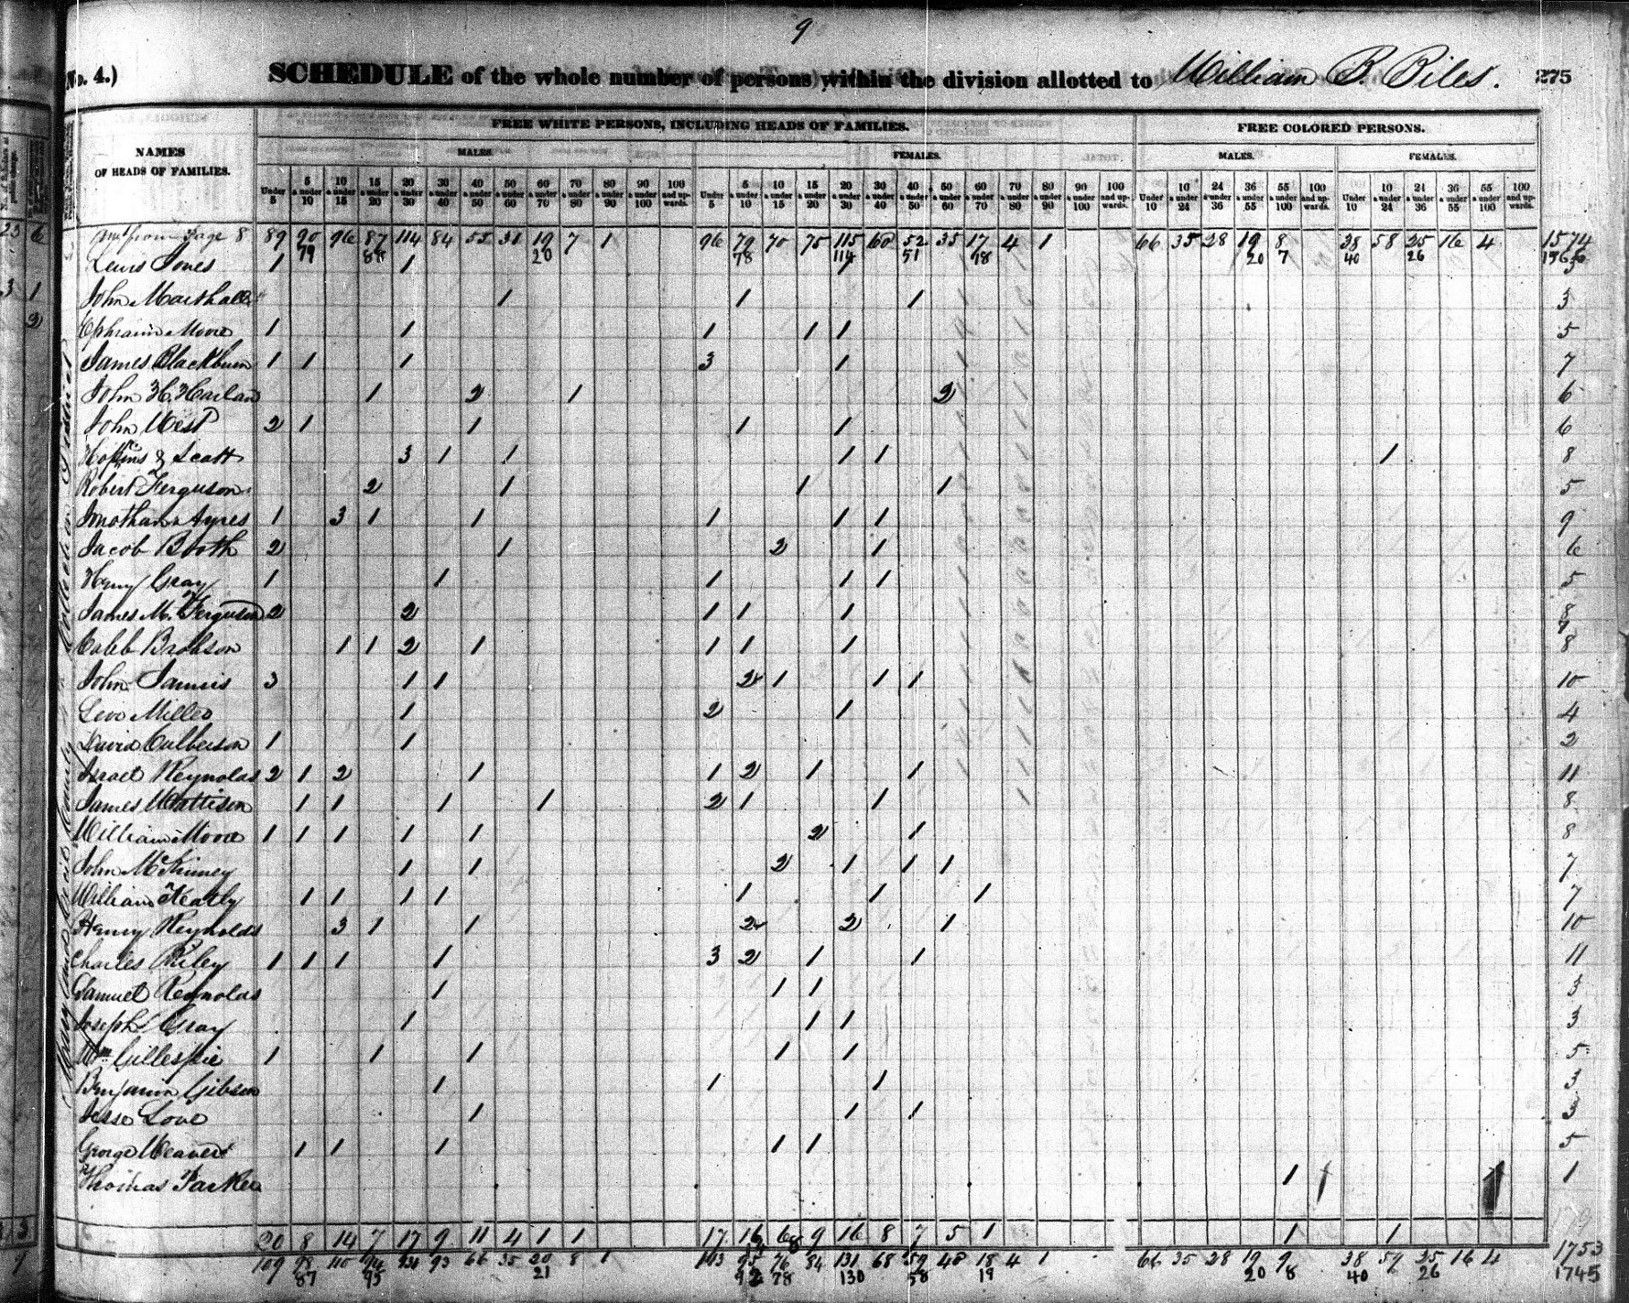 9
No. 4.)
SCHEDULE of the whole number of persons within the division allotted to William B. Biles. 275
NAMES OF HEADS OF FAMILIES.
FREE WHITE PERSONS, INCLUDING HEADS OF FAMILIES.
FREE COLORED PERSONS.
MALES. FEMALES. MALES. FEMALES.
Under 5 | 5 & under 10 | 10 & under 15 | 15 & under 20 | 20 & under 30 | 30 & under 40 | 40 & under 50 | 50 & under 60 | 60 & under 70 | 70 & under 80 | 80 & under 90 | 90 & under 100 | 100 and upwards. | Under 5 | 5 & under 10 | 10 & under 15 | 15 & under 20 | 20 & under 30 | 30 & under 40 | 40 & under 50 | 50 & under 60 | 60 & under 70 | 70 & under 80 | 80 & under 90 | 90 & under 100 | 100 and upwards. | Under 10 | 10 & under 24 | 24 & under 36 | 36 & under 55 | 55 & under 100 | 100 and upwards. | Under 10 | 10 & under 24 | 24 & under 36 | 36 & under 55 | 55 & under 100 | 100 and upwards.
from Page 8 89 90 96 87 114 84 55 31 19 7 1 96 79 70 75 115 60 52 35 17 4 1 66 35 28 19 8 38 58 25 16 4 1574
79 88 20 78 114 51 18 20 7 40 26
Lewis Jones 1 1 3
John Marshall 1 1 1 3
Ephraim Moore 1 1 1 1 1 5
James Blackburn 1 1 1 3 1 7
John H. Harlan 1 2 1 2 6
John West 2 1 1 1 1 6
& Scott 3 1 1 1 1 1 8
Robert Ferguson 2 1 1 1 5
Jonathan Ayres 1 3 1 1 1 1 1 9
Jacob Booth 2 1 2 1 6
Henry Gray 1 1 1 1 1 5
James M. Ferguson 2 2 1 1 1 8
7
Caleb Brobson 1 1 2 1 1 1 1 8
John Jamis 3 1 1 2 1 1 1 10
Levi Miller 1 2 1 4
David Culberson 1 1 2
Israel Reynolds 2 1 2 1 1 2 1 1 11
James Mattison 1 1 1 1 2 1 1 8
William Moore 1 1 1 1 1 2 1 8
John McKinney 1 1 2 1 1 1 7
William 1 1 1 1 1 1 1 7
Henry Reynolds 3 1 1 2 2 1 10
Charles Riley 1 1 1 1 3 2 1 1 11
Samuel Reynolds 1 1 1 3
Joseph Gray 1 1 1 3
Wm Gillespie 1 1 1 1 1 5
Benjamin Gibson 1 1 1 3
Jesse Love 1 1 1 3
George Weaver 1 1 1 1 1 5
Thomas Parker 1 1
20 8 14 7 17 9 11 4 1 1 17 16 6 9 16 8 7 5 1 1 1 179
109 98 110 94 131 93 66 35 20 8 1 113 95 76 84 131 68 59 40 18 4 1 66 35 28 19 9 38 59 25 16 4 1753
87 95 21 92 78 130 58 19 20 8 40 26 1745